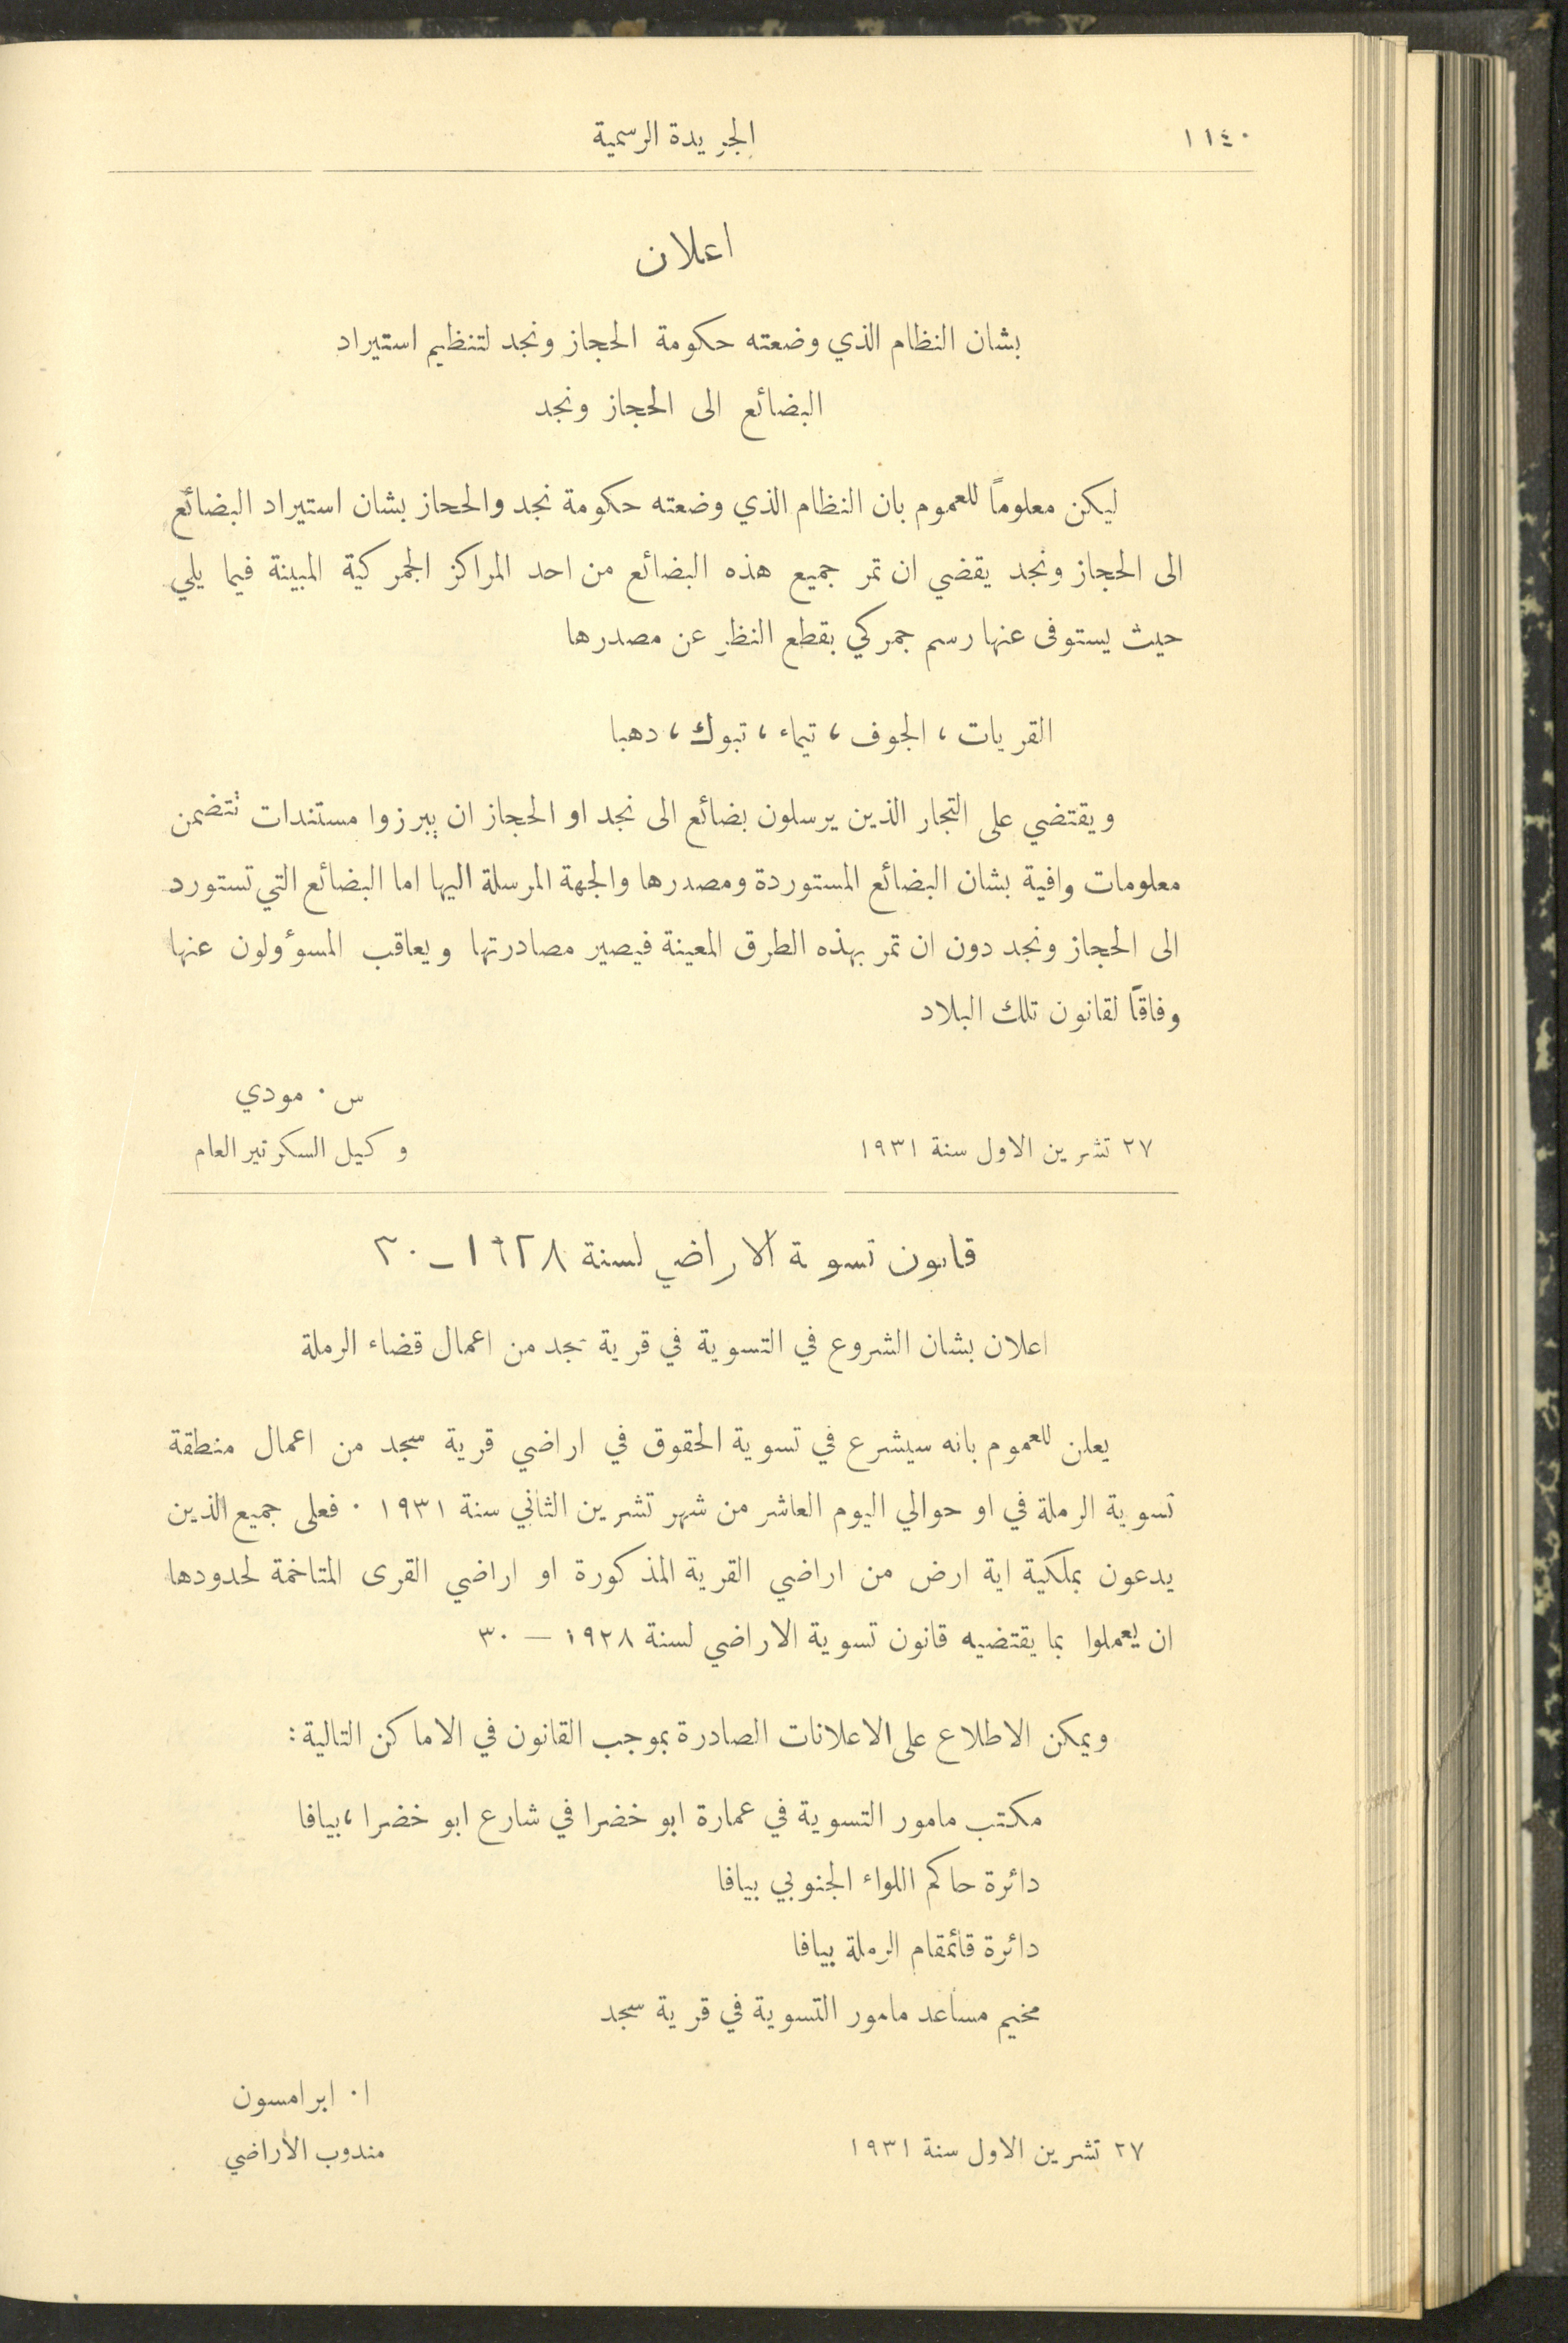 ١١٤٠
الجريدة الرسمية
اعلان
بشان النظام الذي وضعته حكومة الحجاز ونجد لتنظيم استيراد
البضائع الى الحجاز ونجد
ليكن معلوماً للعموم بان النظام الذي وضعته حكومة نجد والحجاز بشان استيراد البضائع
الى الحجاز ونجد يقضي ان تمر جميع هذه البضائع من احد المراكز الجمركية المبينة فيما يلي
حيث يستوفى عنها رسم جمركي بقطع النظر عن مصدرها
القريات، الجوف، تيماء، تبوك، دهبا
ويقتضي على التجار الذين يرسلون بضائع الى نجد او الحجاز ان يبرزوا مستندات تتضمن
معلومات وافية بشان البضائع المستوردة ومصدرها والجهة المرسلة اليها اما البضائع التي تستورد
الى الحجاز ونجد دون ان تمر بهذه الطرق المعينة فيصير مصادرتها ويعاقب المسوؤلون عنها
وفاقاً لقانون تلك البلاد
س . مودي
٢٧ تشرين الاول سنة ١٩٣١
وكيل السكرتير العام
قانون تسوية الاراضي لسنة ١٩٢٨ـ٣٠
اعلان بشان الشروع في التسوية في قرية سجد من اعمال قضاء الرملة
يعلن للعموم بانه سيشرع في تسوية الحقوق في اراضي قرية سجد من اعمال منطقة
تسوية الرملة في او حوالي اليوم العاشر من شهر تشرين الثاني سنة ١٩٣١ . فعلى جميع الذين
يدعون بملكية اية ارض من اراضي القرية المذكورة او اراضي القرى المتاخمة لحدودها
ان يعملوا بما يقتضيه قانون تسوية الاراضي لسنة ١٩٢٨ — ٣٠
ويمكن الاطلاع على الاعلانات الصادرة بموجب القانون في الاماكن التالية:
مكتب مامور التسوية في عمارة ابو خضرا في شارع ابو خضرا، بيافا
دائرة حاكم اللواء الجنوبي بيافا
دائرة قائمقام الرملة بيافا
مخيم مساعد مامور التسوية في قرية سجد
ا . ابرامسون
٢٧ تشرين الاول سنة ١٩٣١
مندوب الاراضي